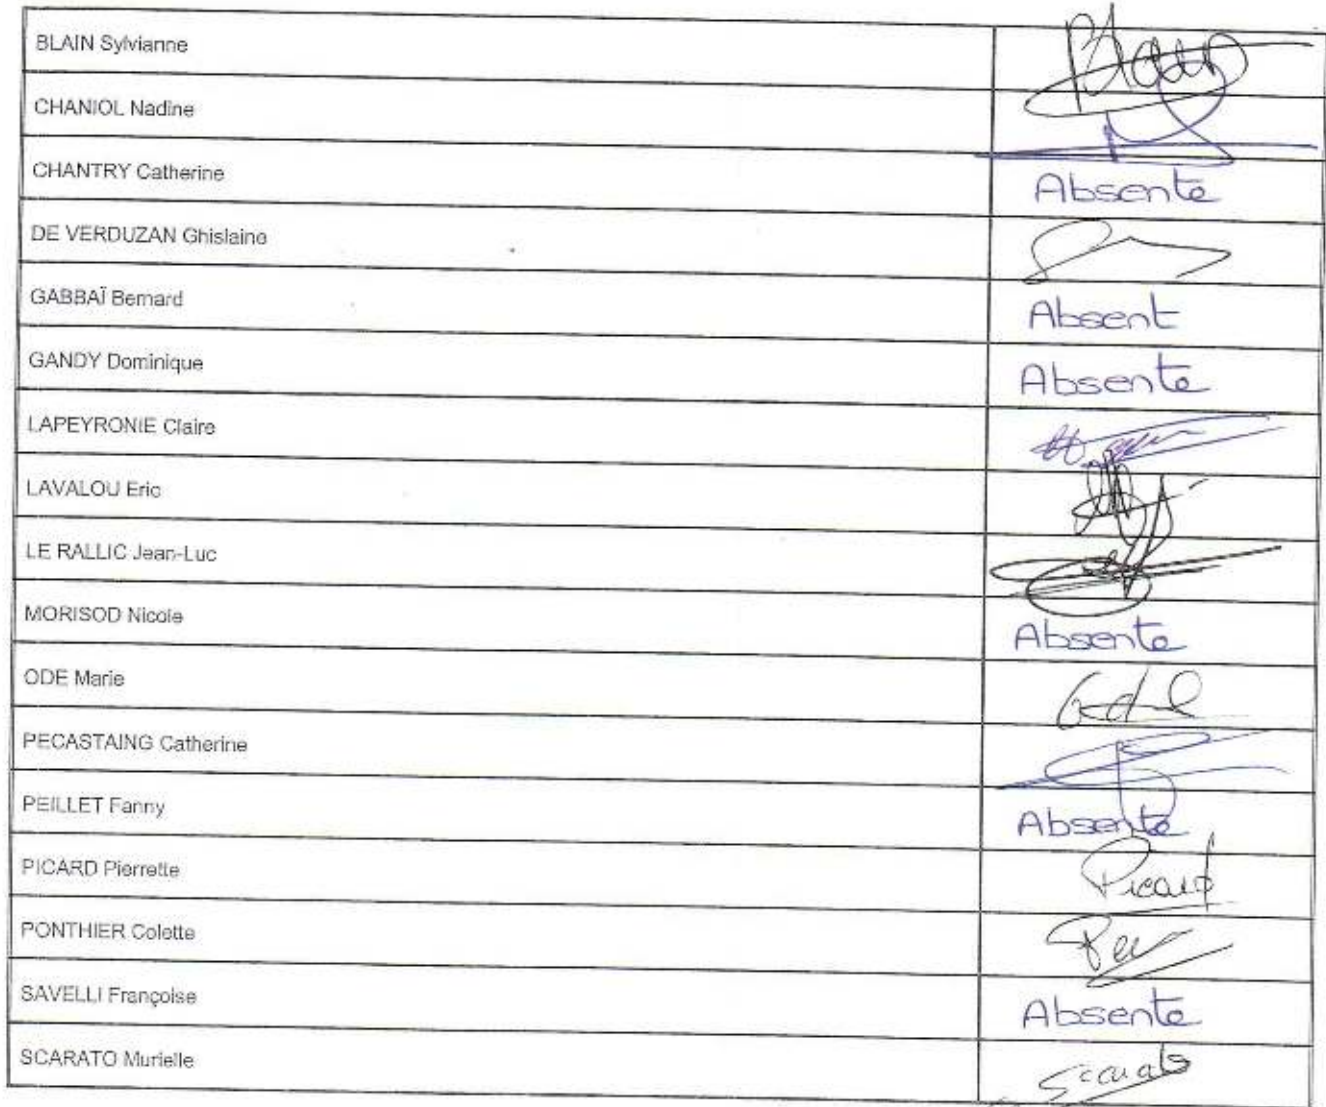 BLAIN Sylvianne Blain
CHANIOL Nadine
CHANTRY Catherine Absente
DE VERDUZAN Ghislaine
GABBAÏ Bernard Absent
GANDY Dominique Absente
LAPEYRONIE Claire
LAVALOU Eric
LE RALLIC Jean-Luc
MORISOD Nicole Absente
ODE Marie
PECASTAING Catherine
PEILLET Fanny Absente
PICARD Pierrette Picard
PONTHIER Colette
SAVELLI Françoise Absente
SCARATO Murielle Scarato